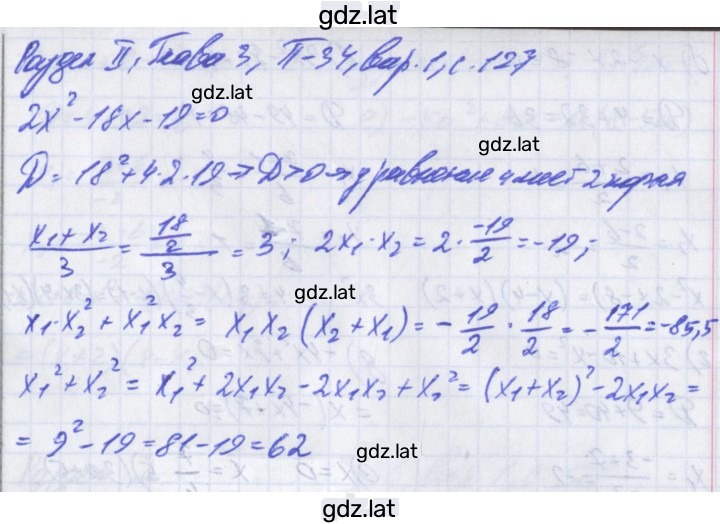 gdz.lat
Раздел II, Глава 3, П-34, вар. 1, с. 127
gdz.lat
2x² - 18x - 19 = 0
gdz.lat
D = 18² + 4·2·19 → D > 0 → уравнение имеет 2 корня
(x₁ + x₂)/3 = (18/2)/3 = 3; 2x₁·x₂ = 2·(-19/2) = -19;
gdz.lat
x₁·x₂² + x₁²x₂ = x₁x₂(x₂ + x₁) = -19/2 · 18/2 = -171/2 = -85,5
gdz.lat
x₁² + x₂² = x₁² + 2x₁x₂ - 2x₁x₂ + x₂² = (x₁ + x₂)² - 2x₁x₂ =
= 9² - 19 = 81 - 19 = 62
gdz.lat
gdz.lat